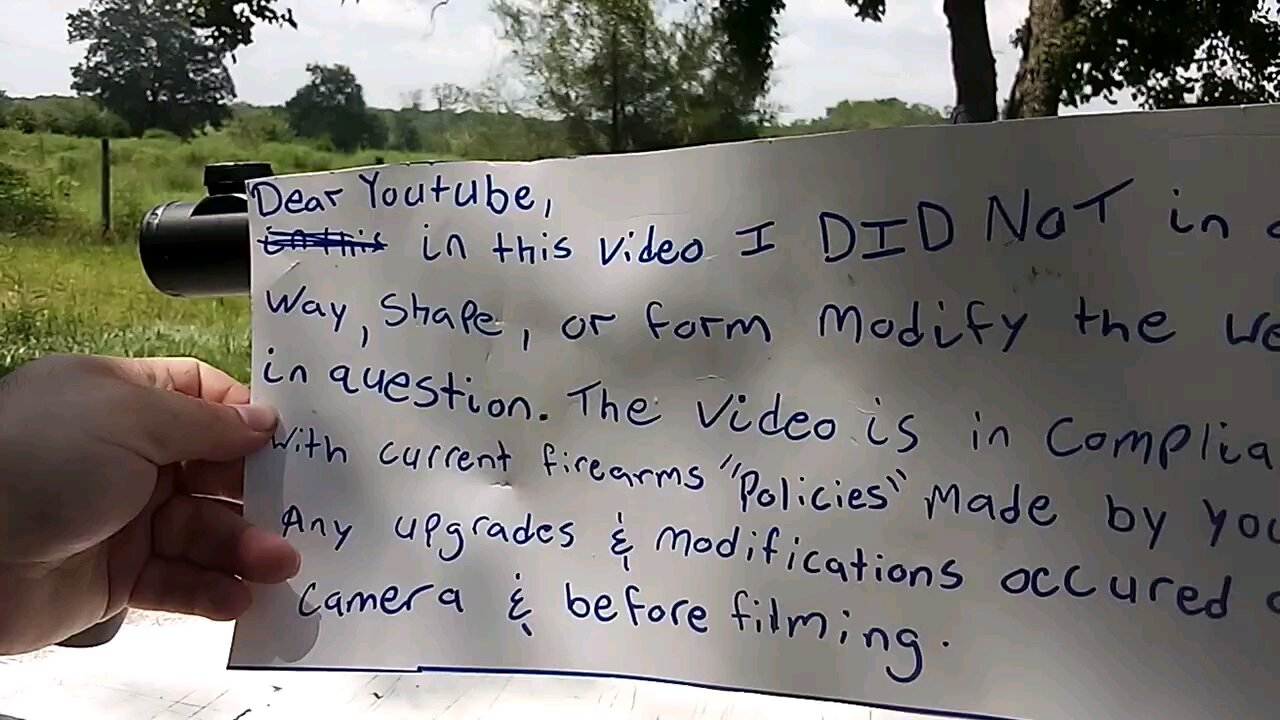 Dear Youtube,
in this video I DID NOT in
Way, Shape, or form modify the
in question. The video is in
With current firearms "Policies" Made by
Any upgrades & modifications occured
Camera & before filming.